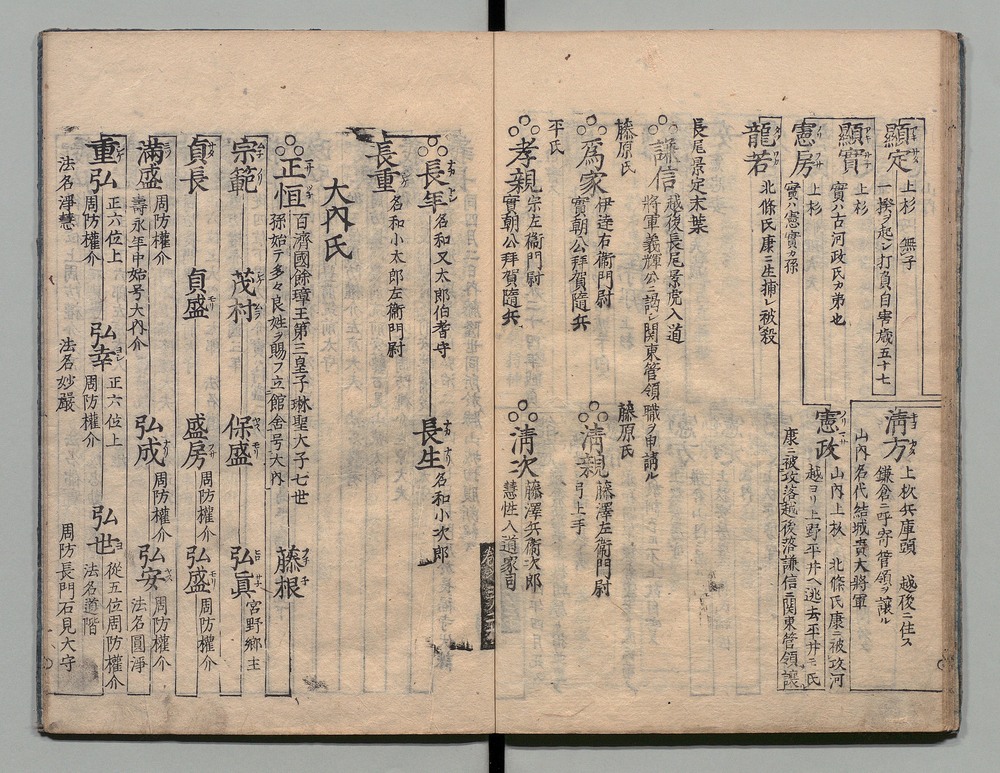 顯定 上杉 無子
一揆ヲ起シ打負自害歳五十七
清方 上杦兵庫頭 越後ニ住ス
鎌倉ニ呼寄管領ヲ譲ル
山内名代結城責大將軍
顯實 上杉
實ハ古河政氏カ弟也
憲房 上杉
實ハ憲實カ孫
憲政 山内上杦 北條氏康ニ被攻河
越ヨリ上野平井ヘ逃去平井ニ氏
康ニ被攻落越後落謙信ニ関東管領譲
龍若 北條氏康ニ生捕レ被殺
長尾景定末葉
謙信 越後長尾景虎入道
將軍義輝公ニ謁シ関東管領職ヲ申請ル
藤原氏
為家 伊達右衛門尉
實朝公拜賀隨兵
藤原氏
清親 藤澤左衛門尉
弓上手
平氏
孝親 宗左衛門尉
實朝公拜賀隨兵
清次 藤澤兵衛次郎
慧性入道家司
長年 名和又太郎伯耆守
長生 名和小次郎
長重 名和小太郎左衛門尉
大内氏
正恒 百濟國餘璋王第三皇子琳聖大子七世
孫始テ多々良姓ヲ賜フ立館舍号大内
藤根
宗範
茂村
保盛
弘眞 宮野郷主
貞長
貞盛
盛房 周防權介
弘盛 周防權介
滿盛 周防權介
壽永年中始号大内介
弘成 周防權介
弘安 周防權介
法名圓淨
重弘 正六位上
周防權介
法名淨慧
弘幸 正六位上
周防權介
法名妙嚴
弘世 從五位周防權介
法名道階
周防長門石見大守